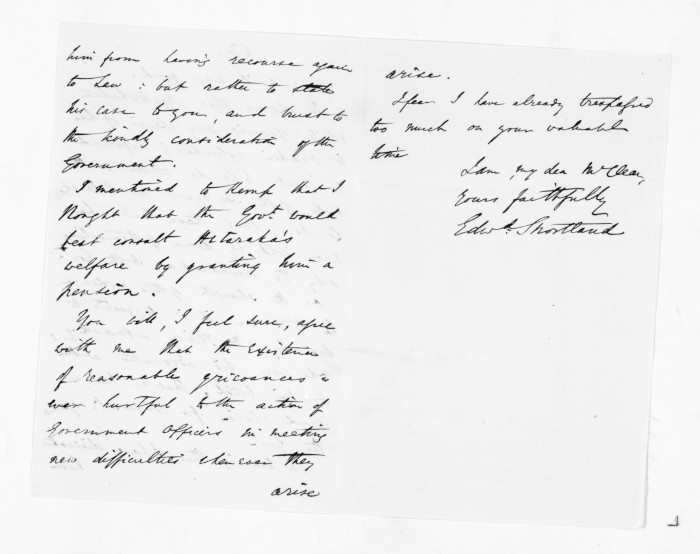 him from having recourse again
to Law : but rather to state
his case to you, and trust to
the kindly consideration of the
Government.
I mentioned to Kemp that I
thought that the Govt. would
best consult
welfare by granting him a
pension.
You will, I feel sure, agree
with me that the existence
of reasonable grievances is
ever hurtful to the action of
Government Officers in meeting
new difficulties whenever they
arise
arise.
I fear I have already trespassed
too much on your valuable
time
I am my dear McLean,
Yours faithfully
Edwd. Shortland